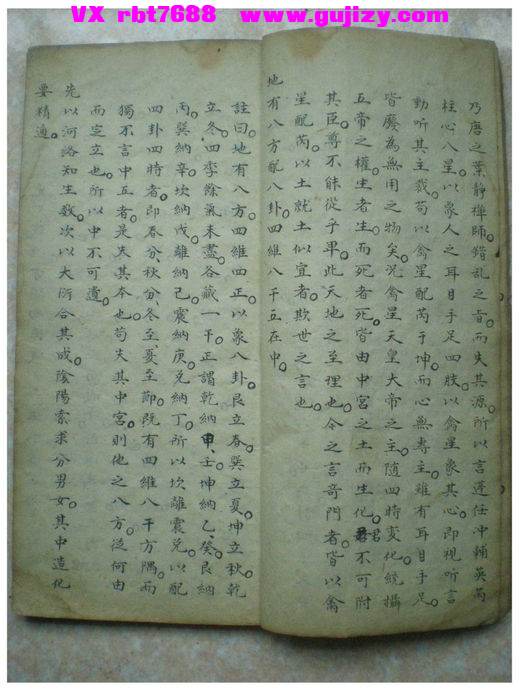 VX rbt7688 www.gujizy.com
乃唐之葉靜禪師錯亂之旨而失其源所以言蓬任冲輔英芮
柱心八星以象人之耳目手足四肢以禽星象其心即視听言
動听其主哉苟以禽星配芮于坤而心無專主雖有耳目手足
皆廢為無用之物矣况禽星天皇大帝之主隨四時变化統攝
五帝之權生者生而死者死皆由中宮之土而生化君不可附
其臣尊不能從乎卑此天地之至理也今之言奇門者皆以禽
星配芮以土就土似宜者欺世之言也
地有八方配八卦四維八干五在中
註曰地有八方四維四正以象八卦艮立春巽立夏坤立秋乾
立冬四季餘氣未盡各藏一干正謂乾納甲壬坤納乙癸艮納
丙巽納辛坎納戊離納己震納庚兌納丁所以坎離震兌以配
四卦四時者即春分秋分冬至夏至節既有四維八干方隅而
獨不言中五者是失其本也苟失其中宮則他之八方從何由
而定立也所以中不可遺
先以河洛知生数次以大衍合其成陰陽索求分男女其中造化
要精通